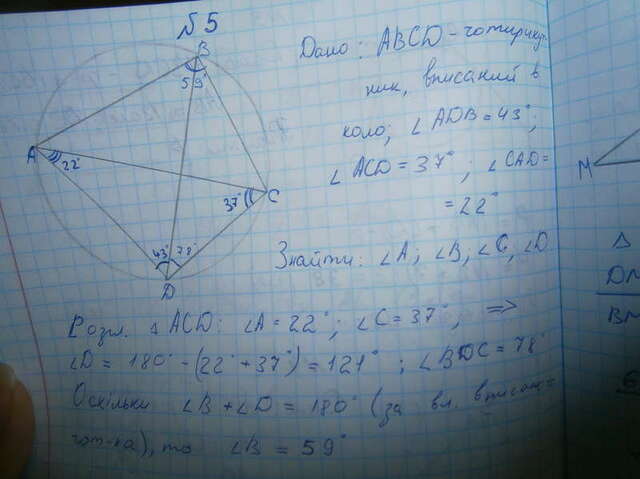 № 5
Дано: ABCD - чотирикут-
ник, вписаний в
коло; ∠ADB = 43°;
∠ACD = 37°; ∠CAD =
= 22°
Знайти: ∠A; ∠B; ∠C, ∠D
B
59°
A
22°
37°
C
43°
78°
D
Розгл. △ACD: ∠A = 22°; ∠C = 37°, =>
∠D = 180° - (22° + 37°) = 121°; ∠BDC = 78°
Оскільки ∠B + ∠D = 180° (за вл. вписан=
чот-ка), то ∠B = 59°
M
Δ